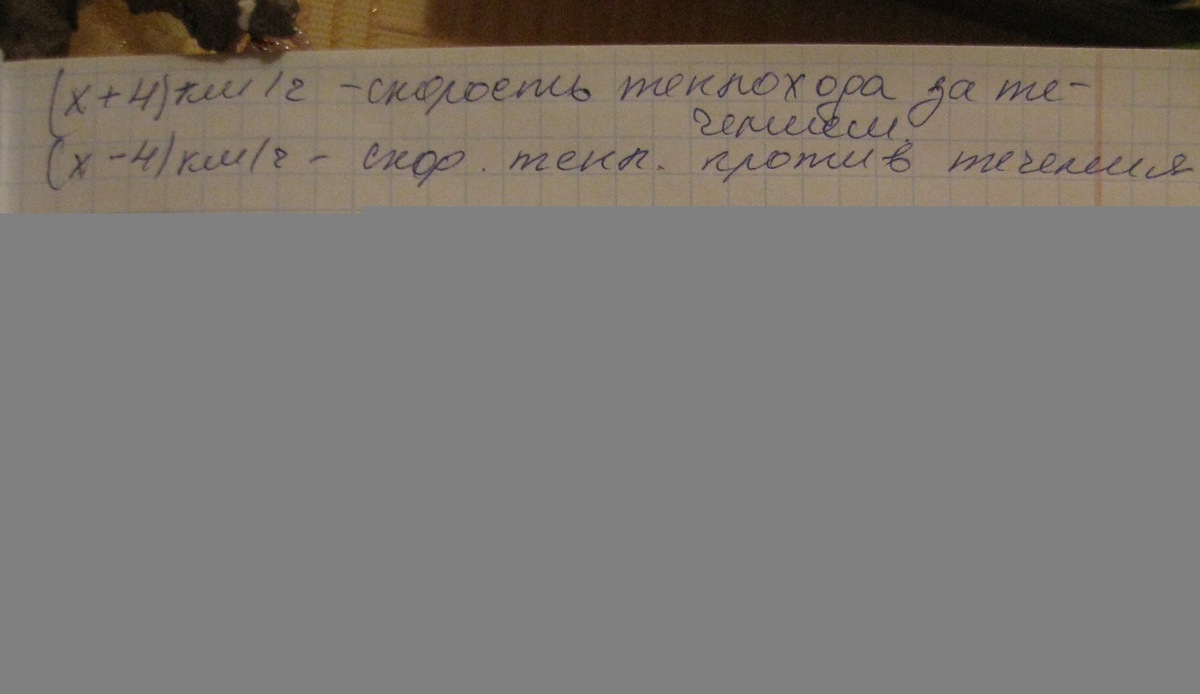 (х+4)км/ч -скорость теплохода за те-
чением.
(х-4)км/ч - скор. тепл. против течения